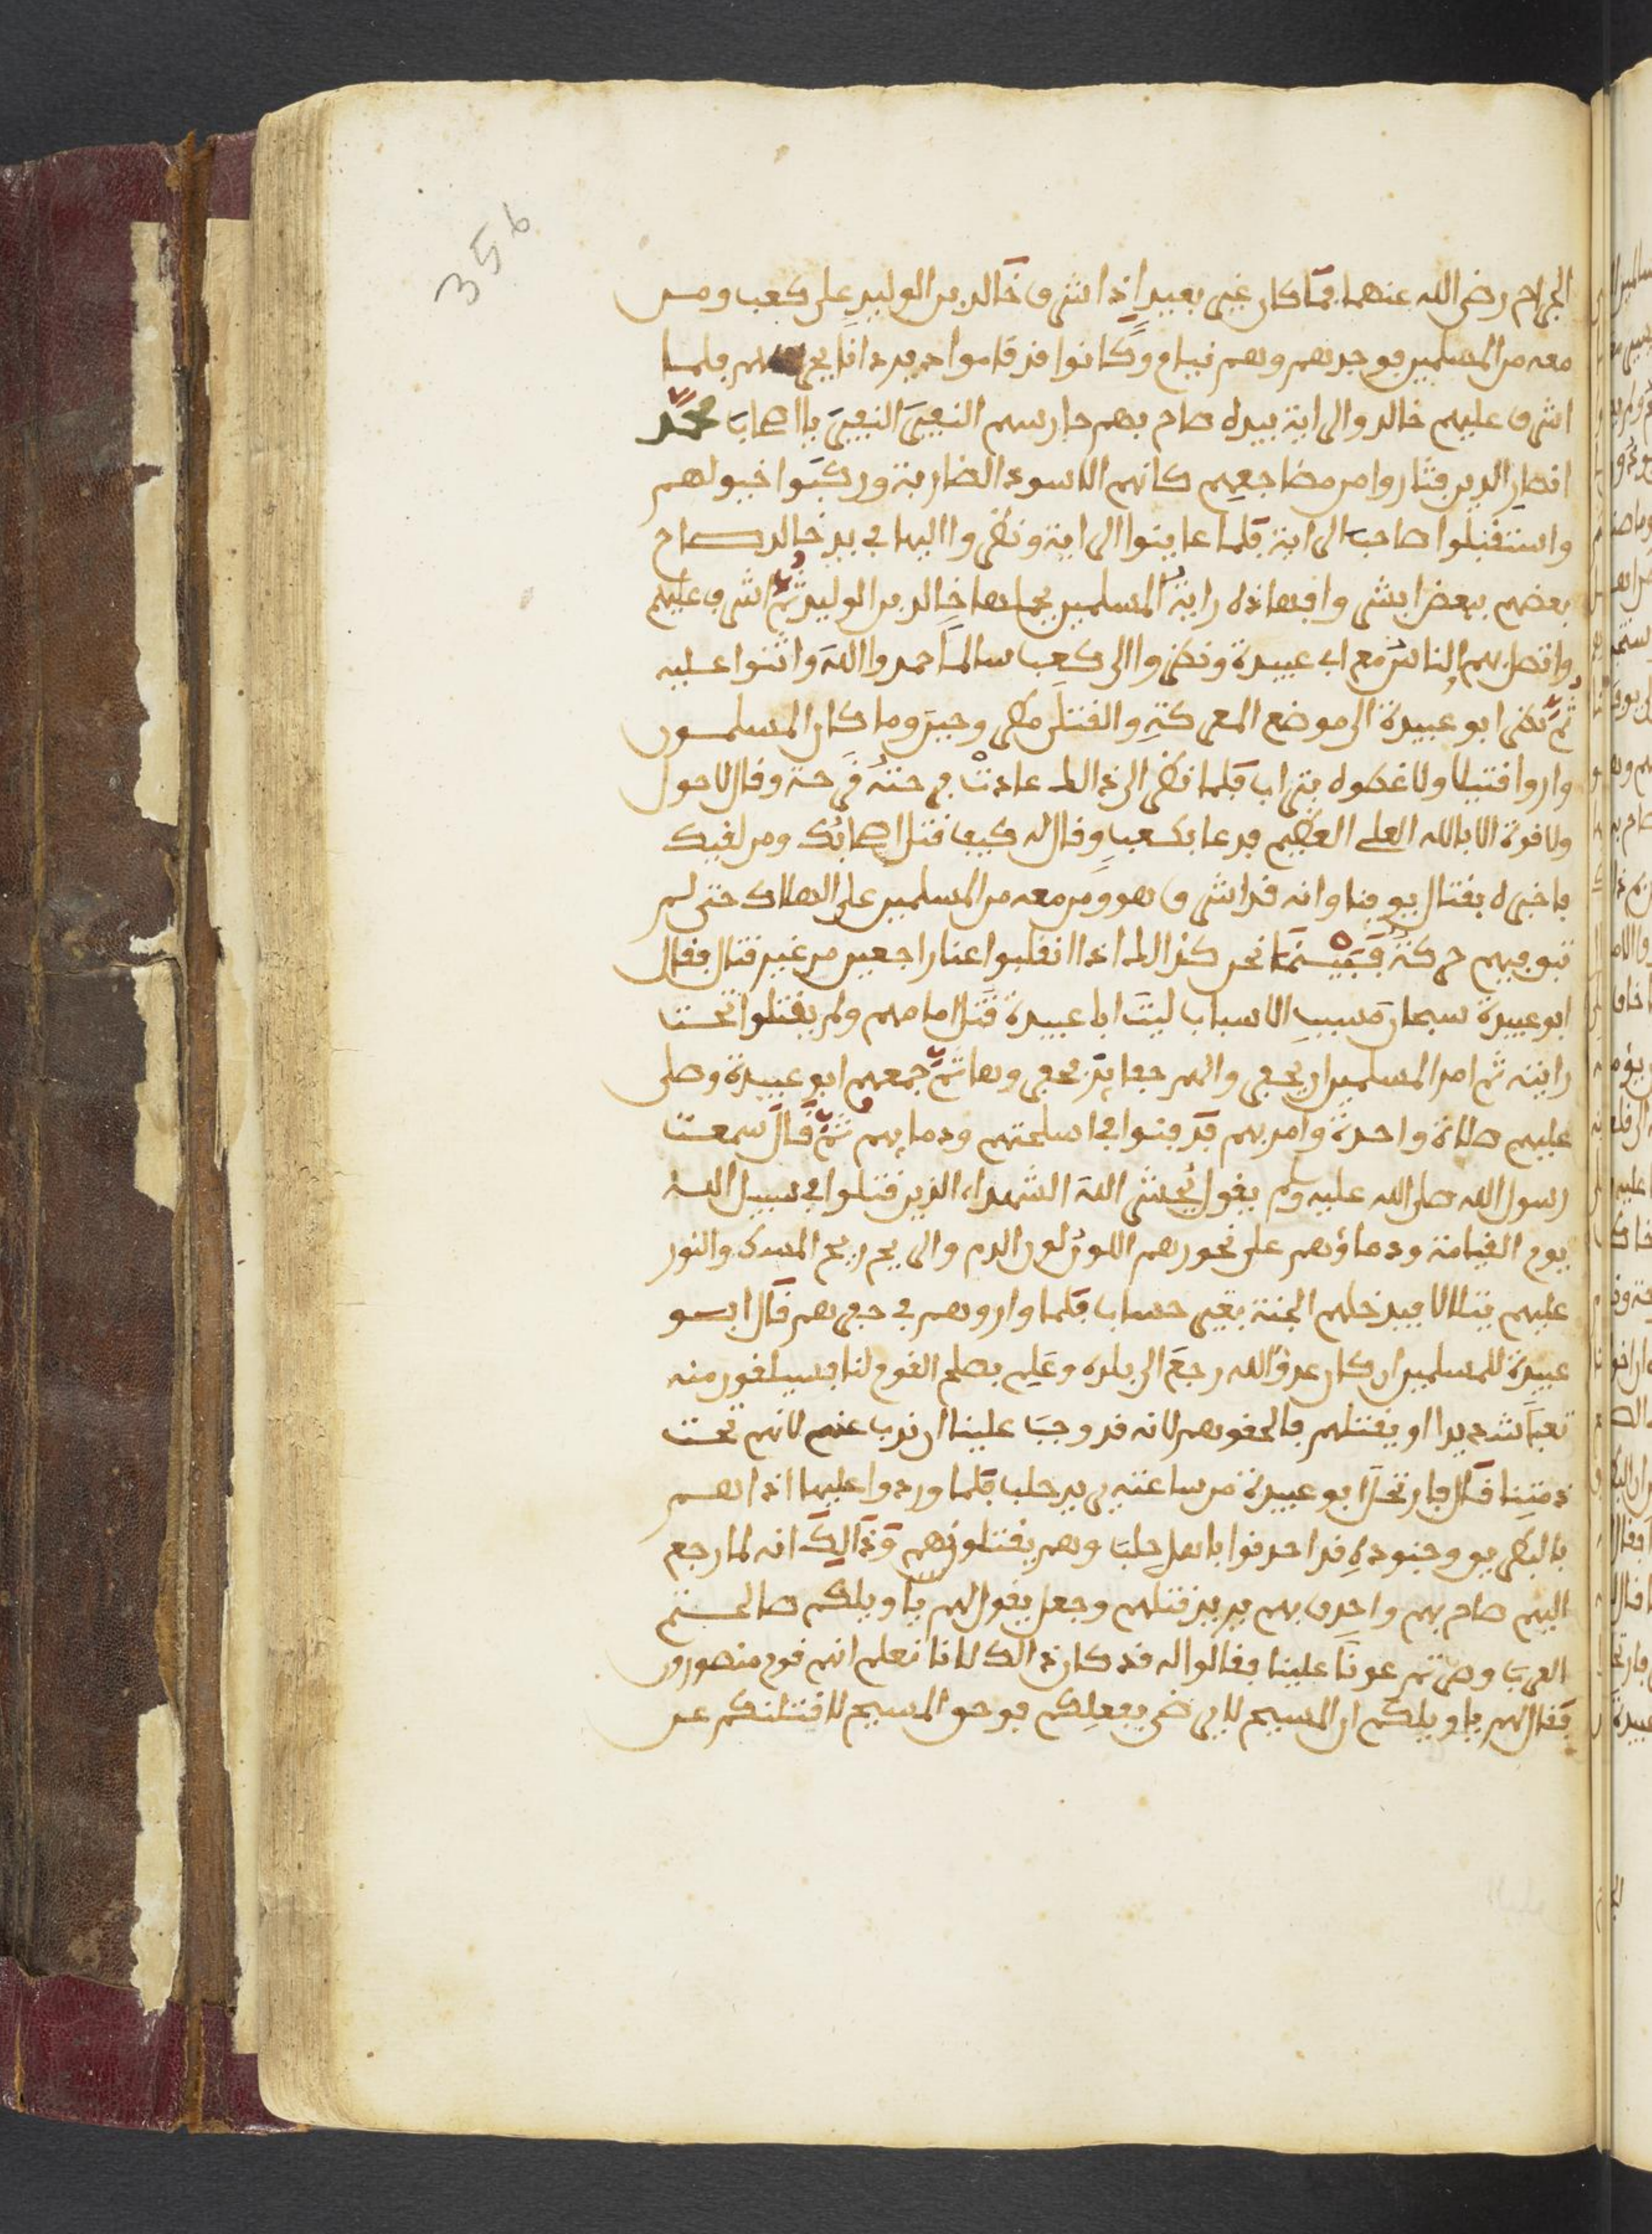 356
الجراح رضي الله عنهما فما كان غير بعيد اذ اشرف خالد بن الوليد على كعب ومن
معه من المسلمين فوجدهم وهم نيام وكانوا قد قاموا
اشرف عليهم خالد والراية بيده صاح بهم حارسهم النفير النفير يا اصحاب محمد
انصار الدين فثاروا من مضاجعهم كانهم الاسود الضارية وركبوا خيولهم
واستقبلوا صاحب الراية فلما عاينوا الراية ونظروا اليها في يد خالد صاح
بعضهم ببعض ابشروا فهاذه راية المسلمين يحملها خالد بن الوليد ثم اشرف عليهم
واتصل بهم الناس مع ابي عبيدة ونظروا الى كعب سالما حمدوا الله واثنوا عليه
ثم نظر ابو عبيدة الى موضع المعركة والقتلى مطروحين وما كان المسلمون
واروا قتيلا ولا غطوه بتراب فلما نظر الى ذالك عادت فرحته قرحة وقال لا حول
ولا قوة الا بالله العلي العظيم فدعا بكعب وقال له كيف قتل اصحابك ومن لقيك
فاخبره بقتال يوقنا وانه قد اشرف هو ومن معه من المسلمين على الهلاك حتى لم
تبق فيهم حركة فبينما نحن كذالك اذا انقلبوا عنا راجعين من غير قتال فقال
ابو عبيدة سبحان مسبب الاسباب ليت ابا عبيدة قتل امامهم ولم يقتلوا تحت
رايته ثم امر المسلمين ان يحفروا لهم حفاير فحفروها ثم جمعهم ابو عبيدة وصلى
عليهم صلاة واحدة وامر بهم فدفنوا في اسلحتهم ودمايهم ثم قال سمعت
رسول الله صلى الله عليه وسلم يقول يحشر الله الشهداء الذين قتلوا في سبيل الله
يوم القيامة ودماؤهم على نحورهم اللون لون الدم والريح ريح المسك والنور
عليهم يتلالا فيدخلهم الجنة بغير حساب فلما واروهم في حفرهم قال ابو
عبيدة للمسلمين ان كان عدو الله رجع الى بلده وعلم بصلح القوم لنا فسيلقون منه
تعبا شديدا او يقتلهم فالحقوهم لانه قد وجب علينا ان نذب عنهم لانهم تحت
ذمتنا قال فارتحل ابو عبيدة من ساعته يريد حلب فلما وردوا عليها اذا هم
بالبطريق وجنوده قد احدقوا باهل حلب وهم يقتلونهم وذالك انه لما رجع
اليهم صاح بهم واحدق بهم يريد قتلهم وجعل يقول لهم يا ويلكم صالحتم
العرب وصرتم عونا علينا فقالوا له قد كان ذالك لانا نعلم انهم قوم منصورون
فقال لهم يا ويلكم ان المسيح لا يرضى بفعلكم فوحق المسيح لاقتلنكم عن